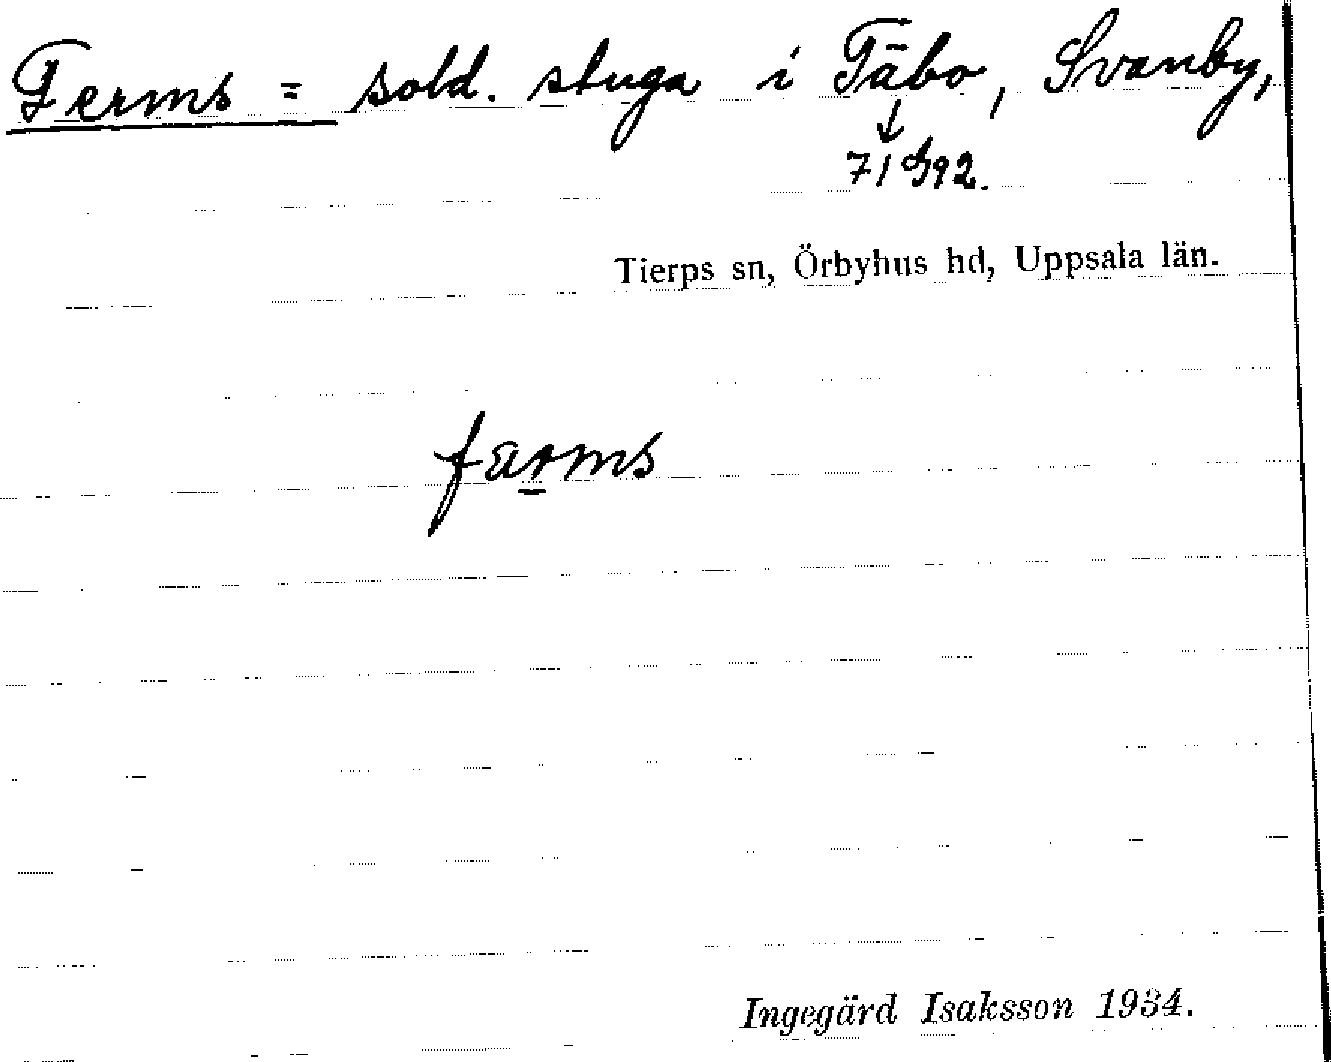 Ferms = sold. stuga i Täbo, Svanby,
↓
Tierps sn, Örbyhus hd, Uppsala län.
farms
Ingegärd Isaksson 1934.